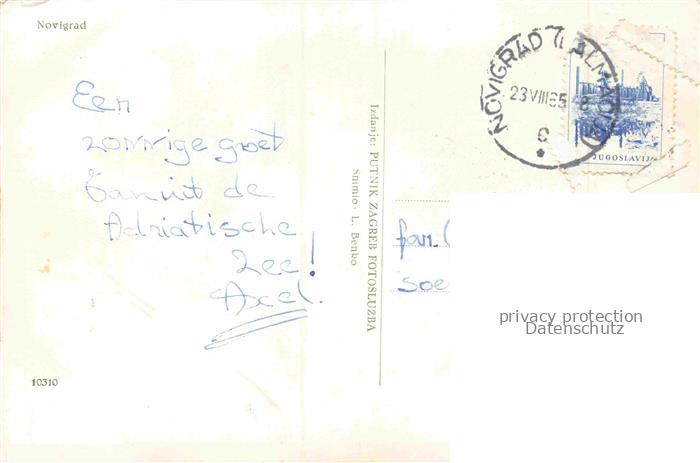 Novigrad
Een
zonnige groet
vanuit de
Adriatische
Zee!
Axel.
10310
Izdanje: PUTNIK ZAGREB FOTOSLUŽBA
Snimio: L. Benko
NOVIGRAD (DALMAC
23 VIII 65 - 8
JUGOSLAVIJA
fam.
soe
privacy protection
Datenschutz